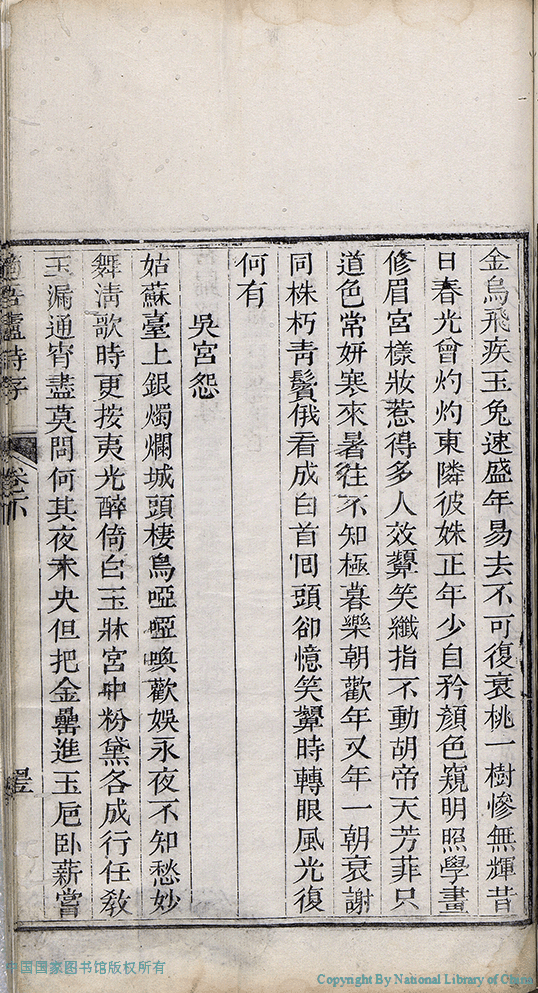 金烏飛疾玉兔速盛年易去不可復衰桃一樹慘無輝昔
日春光曾灼灼東隣彼姝正年少自矜顏色窺明照學畫
修眉宮樣妝惹得多人效顰笑纖指不動胡帝天芳菲只
道色常妍寒來暑往不知極暮樂朝歡年又年一朝衰謝
同株朽靑鬢俄看成白首囘頭卻憶笑顰時轉眼風光復
何有
吳宮怨
姑蘇臺上銀燭爛城頭棲烏啞啞喚歡娛永夜不知愁妙
舞淸歌時更按夷光醉倚白玉牀宮中粉黛各成行任敎
玉漏通宵盡莫問何其夜未央但把金罍進玉巵卧薪嘗
廬詩存
卷六
中国国家图书馆版权所有
Copyright By National Library of China